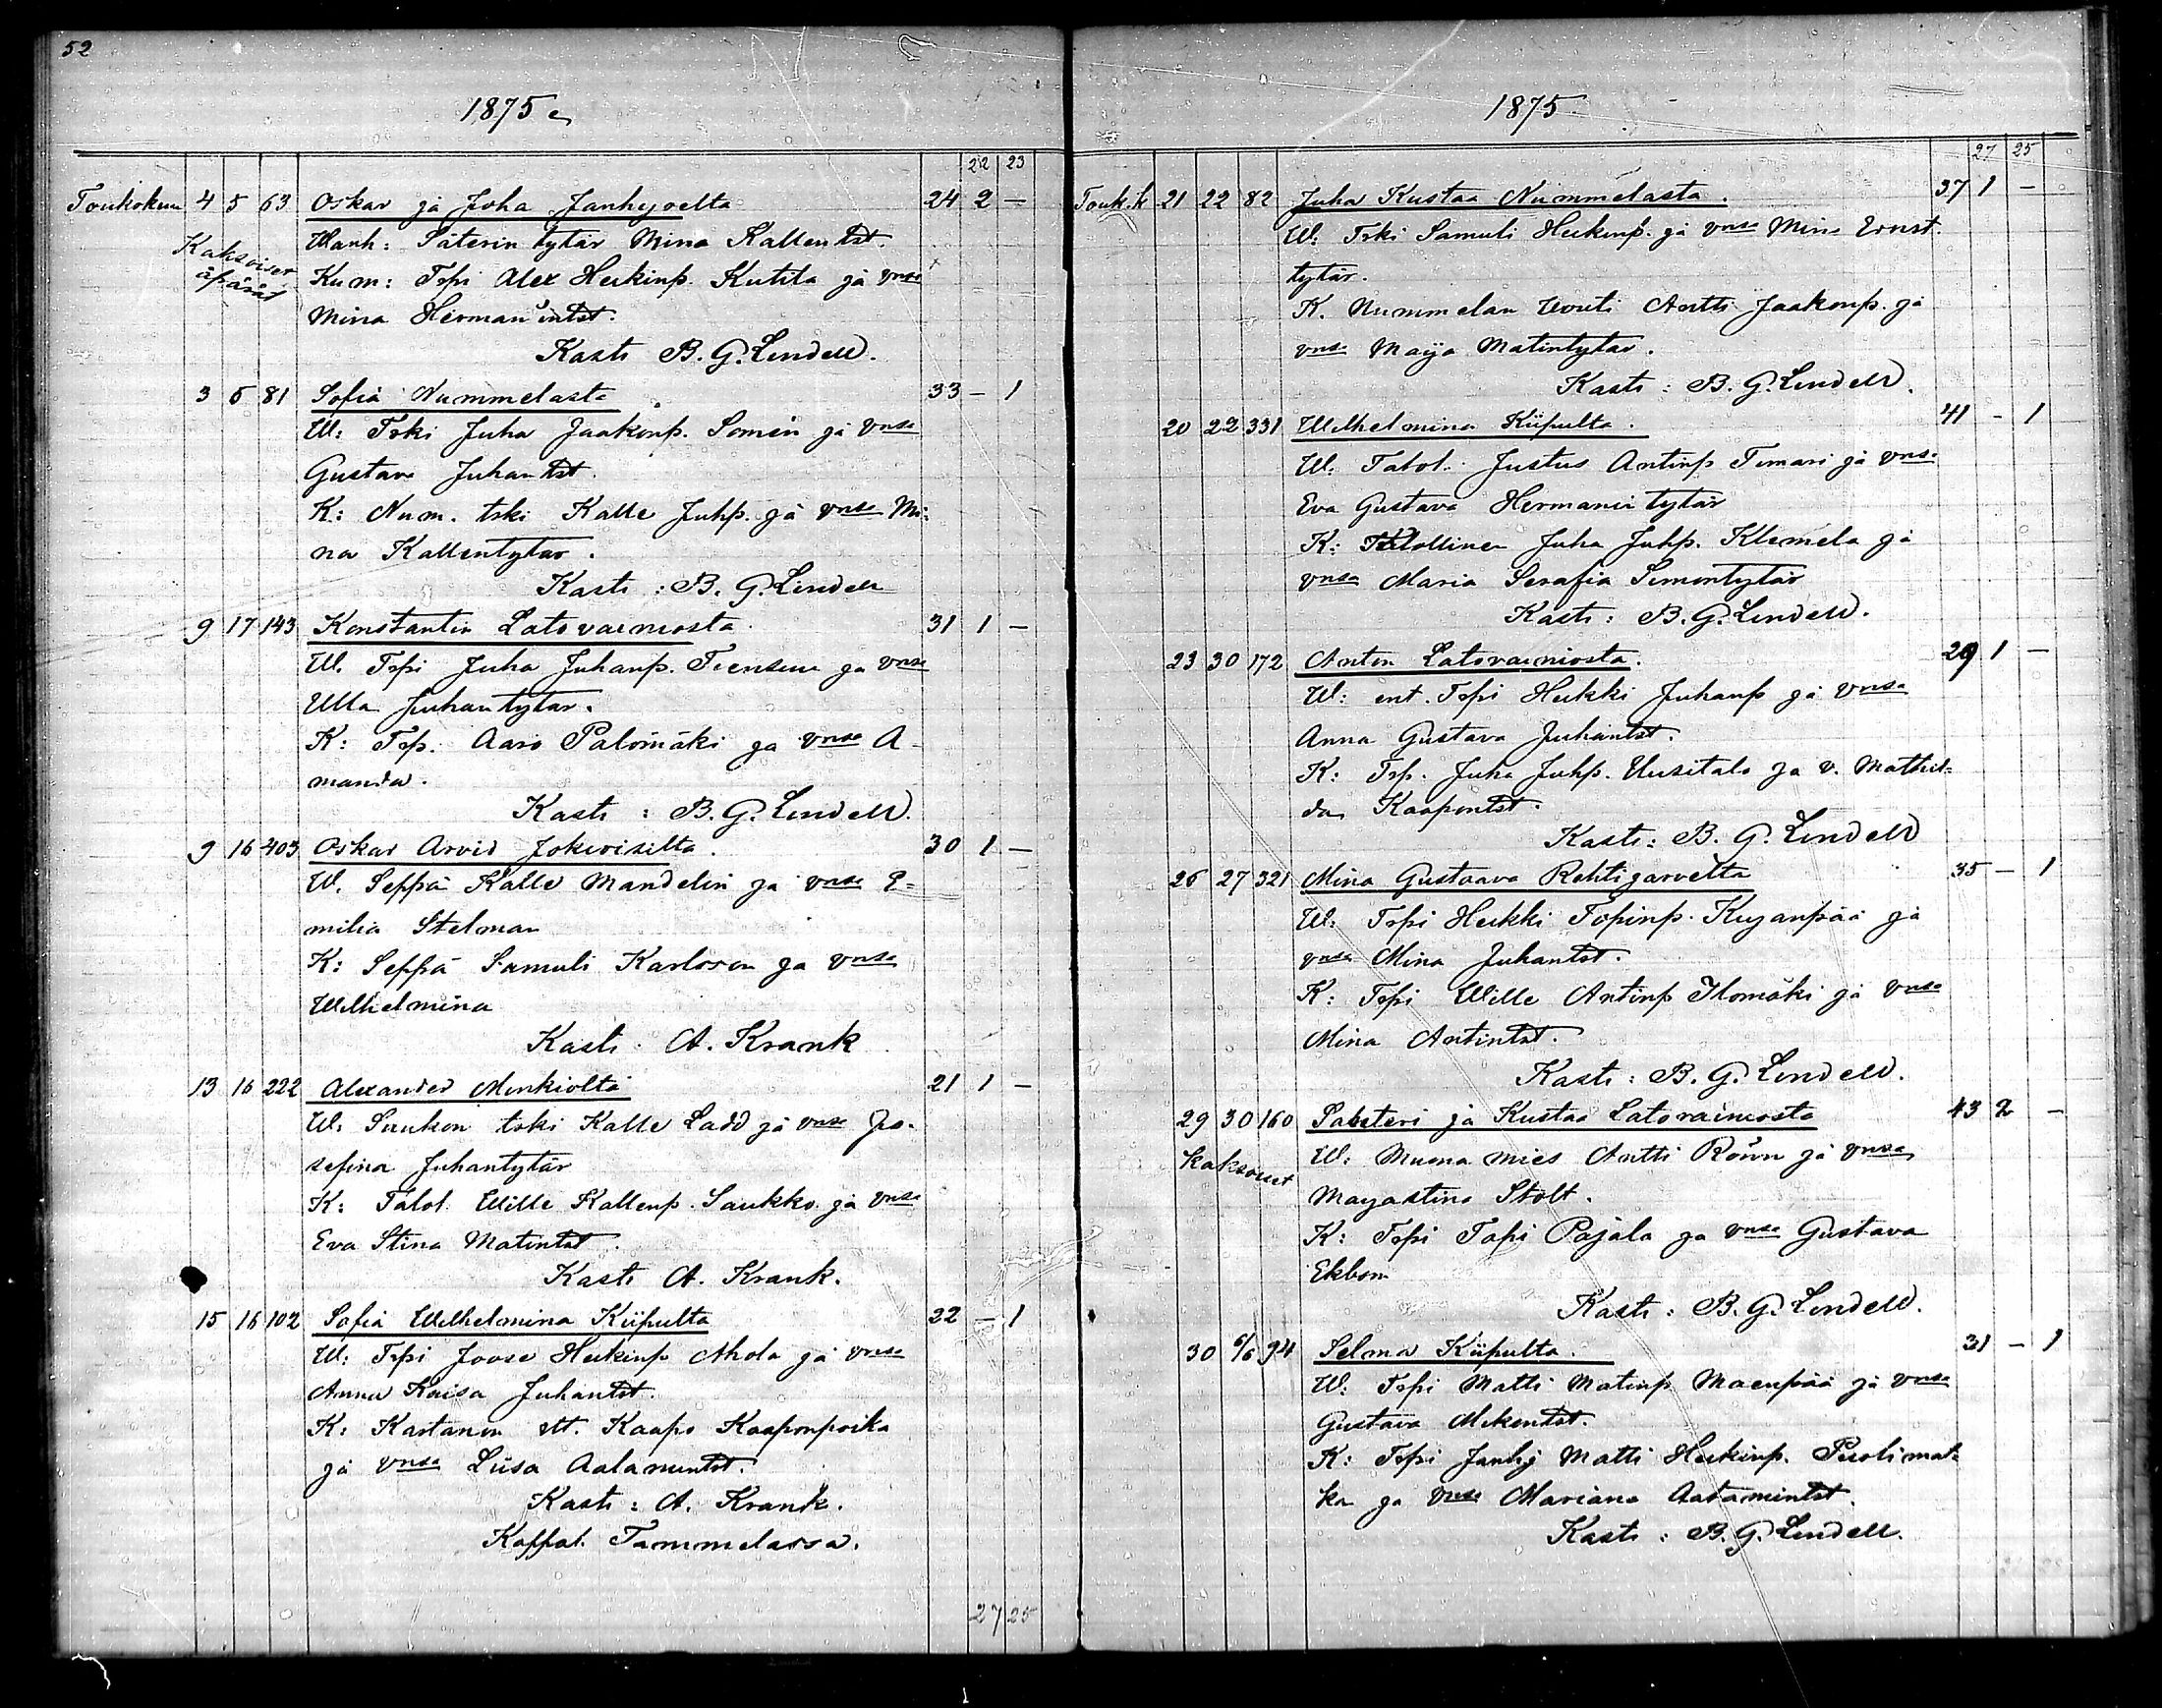 52
1875
22 23
Toukokuu 4 5 63 Oskar ja Juha Janhijoelta 24 2 —
Kaksoiset äpärät
Wanh: Säterin tytär Mina Kallentst.
Kum: Trpi Alex Heikinp. Kutila ja vnsa
Mina Hermanintst.
Kasti B. G. Lindell.
3 5 81 Sofia Nummelasta 33 — 1
W: Trki Juha Jaakonp. Somén ja vnsa
Gustava Juhantst.
K: Num. trki Kalle Juhp. ja vnsa Mi:
na Kallentytär.
Kasti: B. G. Lindell
9 17 143 Konstantin Latovainiosta 31 1 —
W. Trpi Juha Juhanp. ja vnsa
Ulla Juhantytär.
K: Trp. Aaro Palomäki ja vnsa A-
manda.
Kasti: B. G. Lindell.
9 16 403 Oskar Arvid Jokioisilta. 30 1 —
W. Seppä Kalle Mandelin ja vnsa E=
milia Stelman
K: Seppä Samuli Karlsson ja vnsa
Wilhelmina
Kasti. A. Krank
13 16 222 Alexander Minkiöltä 21 1 —
W: Saukon trki Kalle Ladd ja vnsa Jo-
sefina Juhantytär
K: Talol. Wille Kallenp. Saukko ja vnsa
Eva Stina Matintst.
Kasti A. Krank.
15 16 102 Sofia Wilhelmina Kiipulta 22 — 1
W: Trpi Joose Heikinp Ahola ja vnsa
Anna Kaisa Juhantst.
K: Kartanon Kaapo Kaaponpoika
ja vnsa Liisa Aatamintst.
Kasti: A. Krank.
Kappal. Tammelassa.
27 25
1875
27 25
Touk.k 21 22 82 Juha Kustaa Nummelasta. 37 1 —
W: Trki Samuli Heikinp. ja vnsa Mina Ernst.
tytär.
K. Nummelan Vouti Antti Jaakonp. ja
vnsa Maija Matintytär.
Kasti: B. G. Lindell.
20 22 331 Wilhelmina Kiipulta. 41 — 1
W. Talol. Justus Antinp Timari ja vnsa
Eva Gustava Hermanin tytär
K: Talollinen Juha Juhp. Klemelä ja
vnsa Maria Serafia Simontytär
Kasti: B. G. Lindell.
23 30 172 Anton Latovainiosta. 29 1 —
W: ent. Trpi Heikki Juhanp ja vnsa
Anna Gustava Juhantst.
K: Trp. Juha Juhp. Uusitalo ja v. Mathil=
da Kaapontst.
Kasti: B. G. Lindell
26 27 321 Mina Gustaava Rehtijärveltä 35 — 1
W: Trpi Heikki Topinp. Kujanpää ja
vnsa Mina Juhantst.
K: Trpi Wille Antinp Ilomäki ja vnsa
Mina Antintst.
Kasti: B. G. Lindell.
29 30 160 ja Kustaa Latovainiosta 43 2 —
Kaksoiset
W: Muona mies Antti ja vnsa
Majastina Stolt.
K: Trpi Topi Pajala ja vnsa Gustava
Ekbom
Kasti: B. G. Lindell.
30 6/6 94 Selma Kiipulta. 31 — 1
W: Trpi Matti Matinp Mäenpää ja vnsa
Gustava Mikentst.
K: Trpi Janhij Matti Heikinp. Puolimat=
ka ja vnsa Mariana Aatamintst.
Kasti: B. G. Lindell.